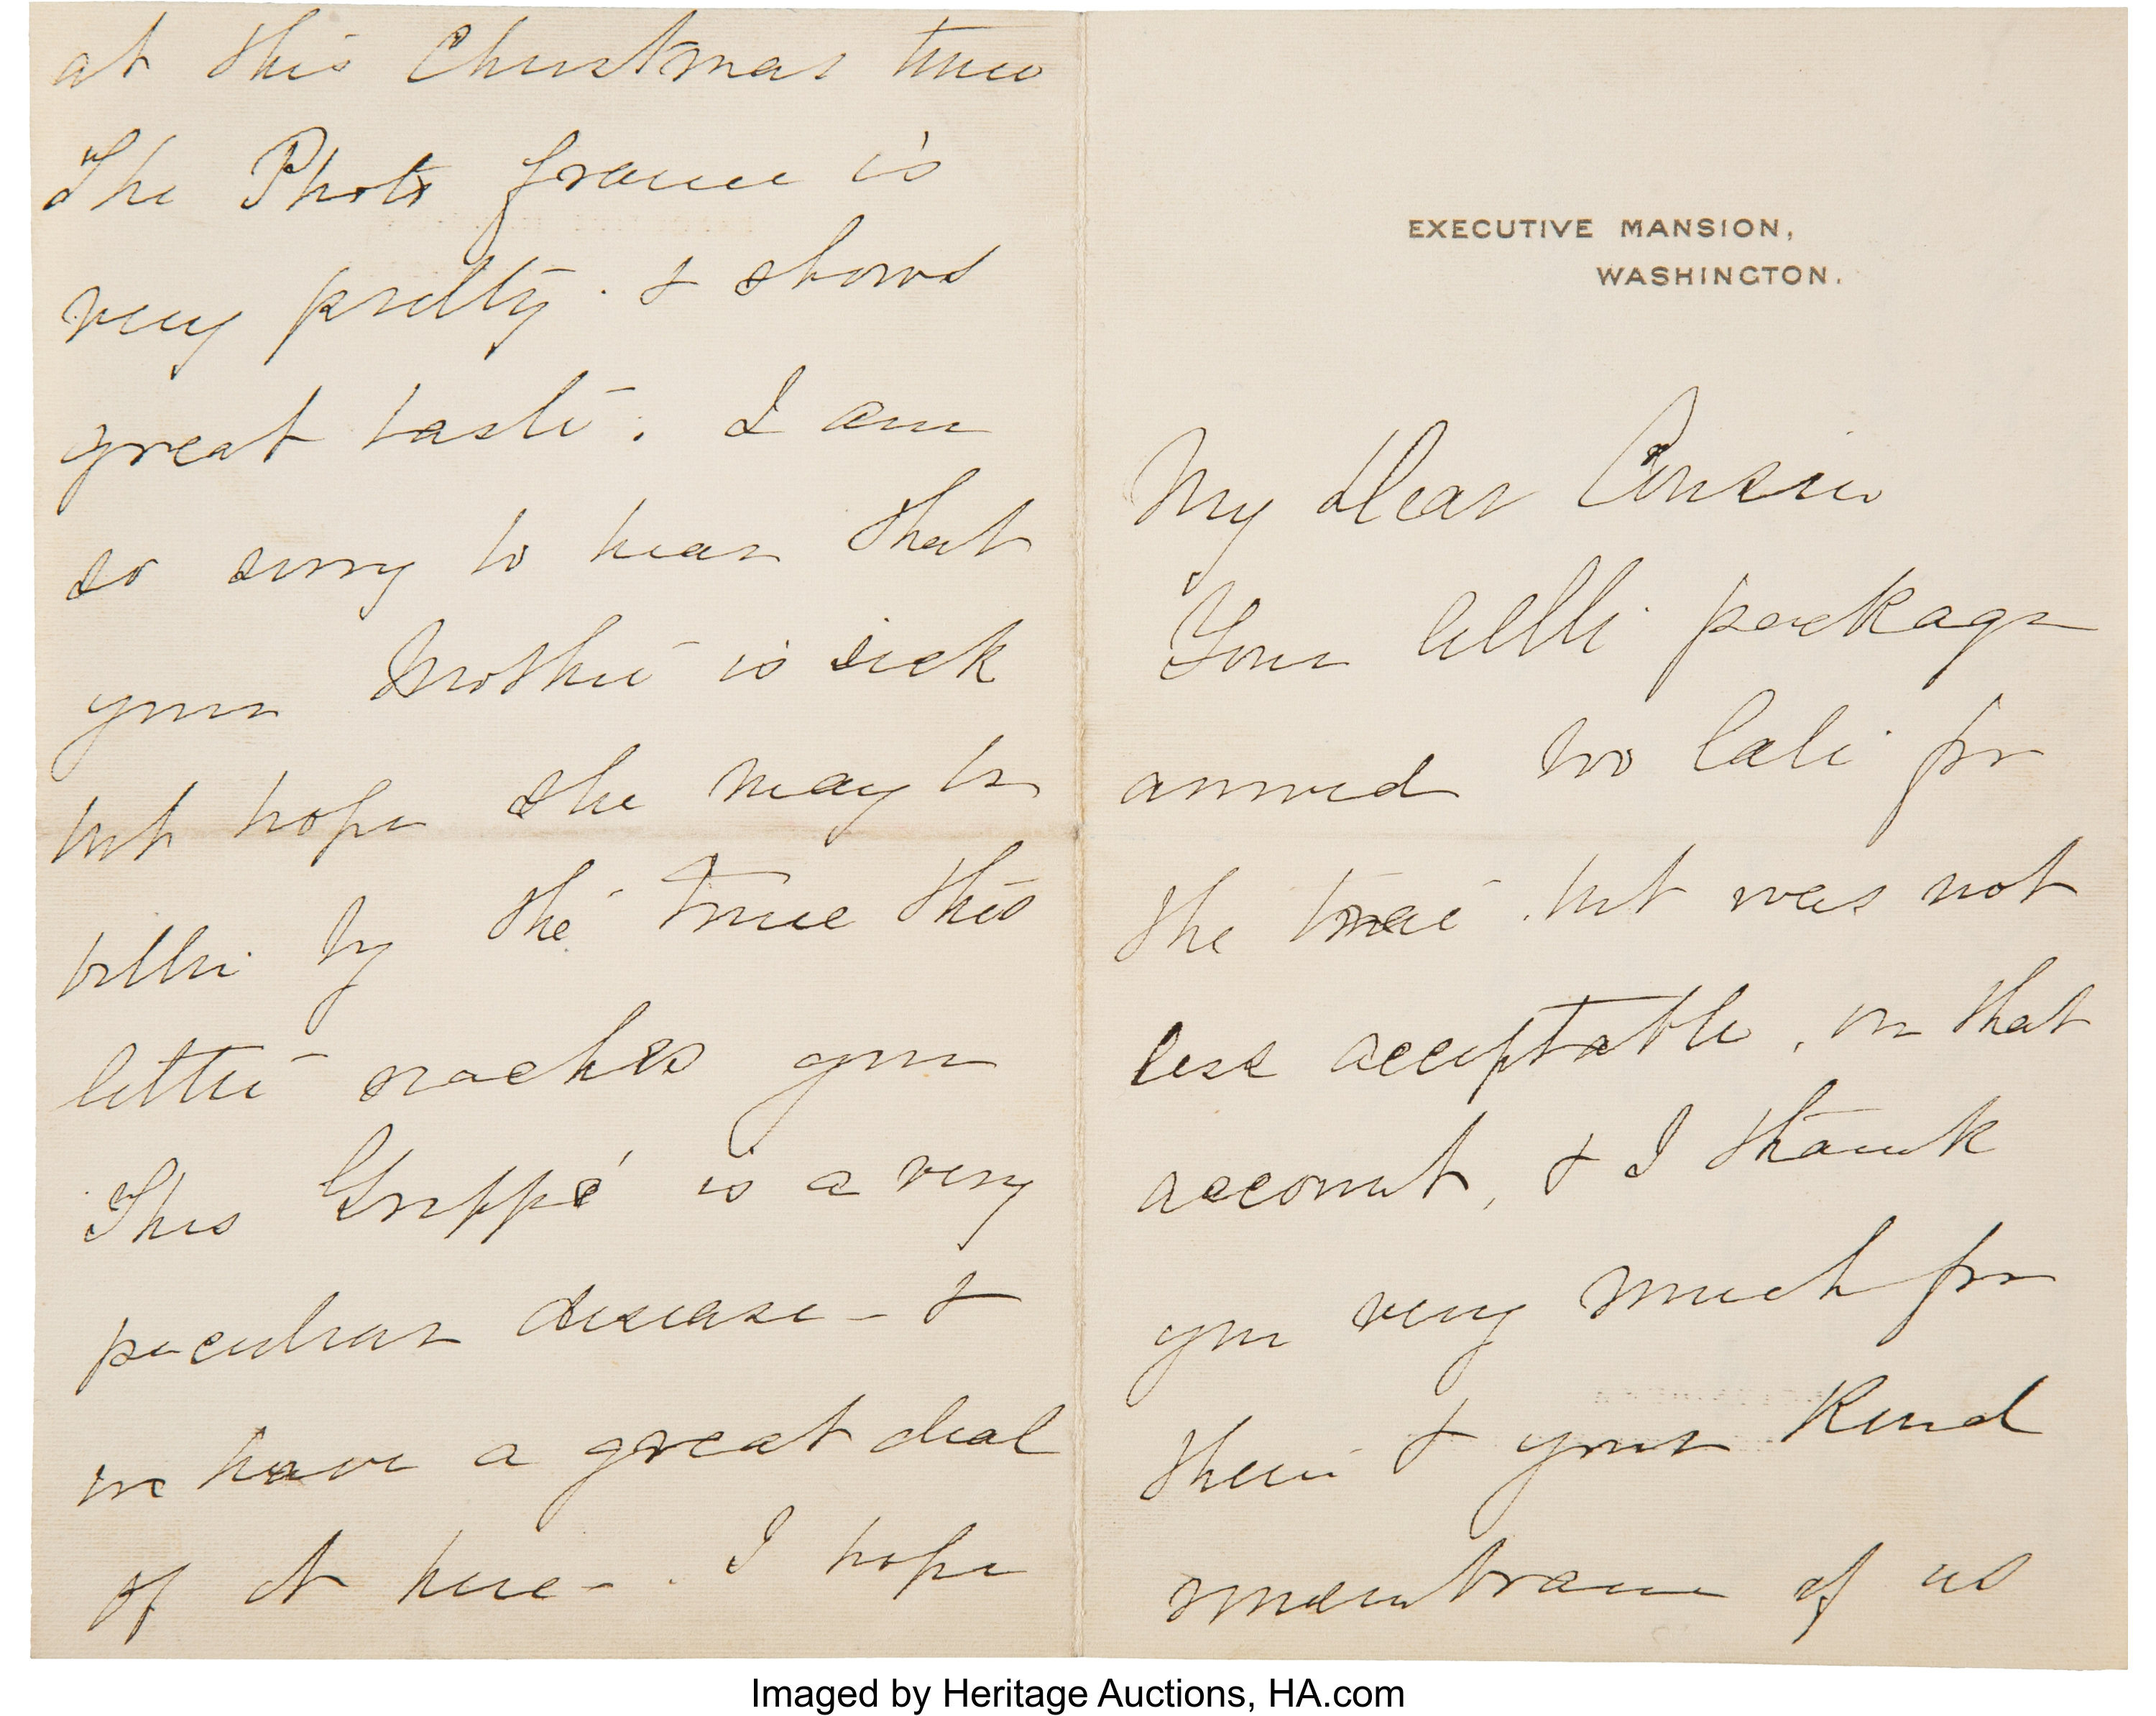 EXECUTIVE MANSION,
WASHINGTON.
My dear Cousin
Your little package
arrived too late for
the tree but was not
less acceptable, on that
account, & I thank
you very much for
them & your kind
remembrance of us
at this Christmas time
The Photo frame is
very pretty. & shows
great taste. I am
so sorry to hear that
your Mother is sick
but hope she may be
better by the time this
letter reaches you
This Grippé is a very
peculiar disease - &
we have a great deal
of it here -. I hope
Imaged by Heritage Auctions, HA.com